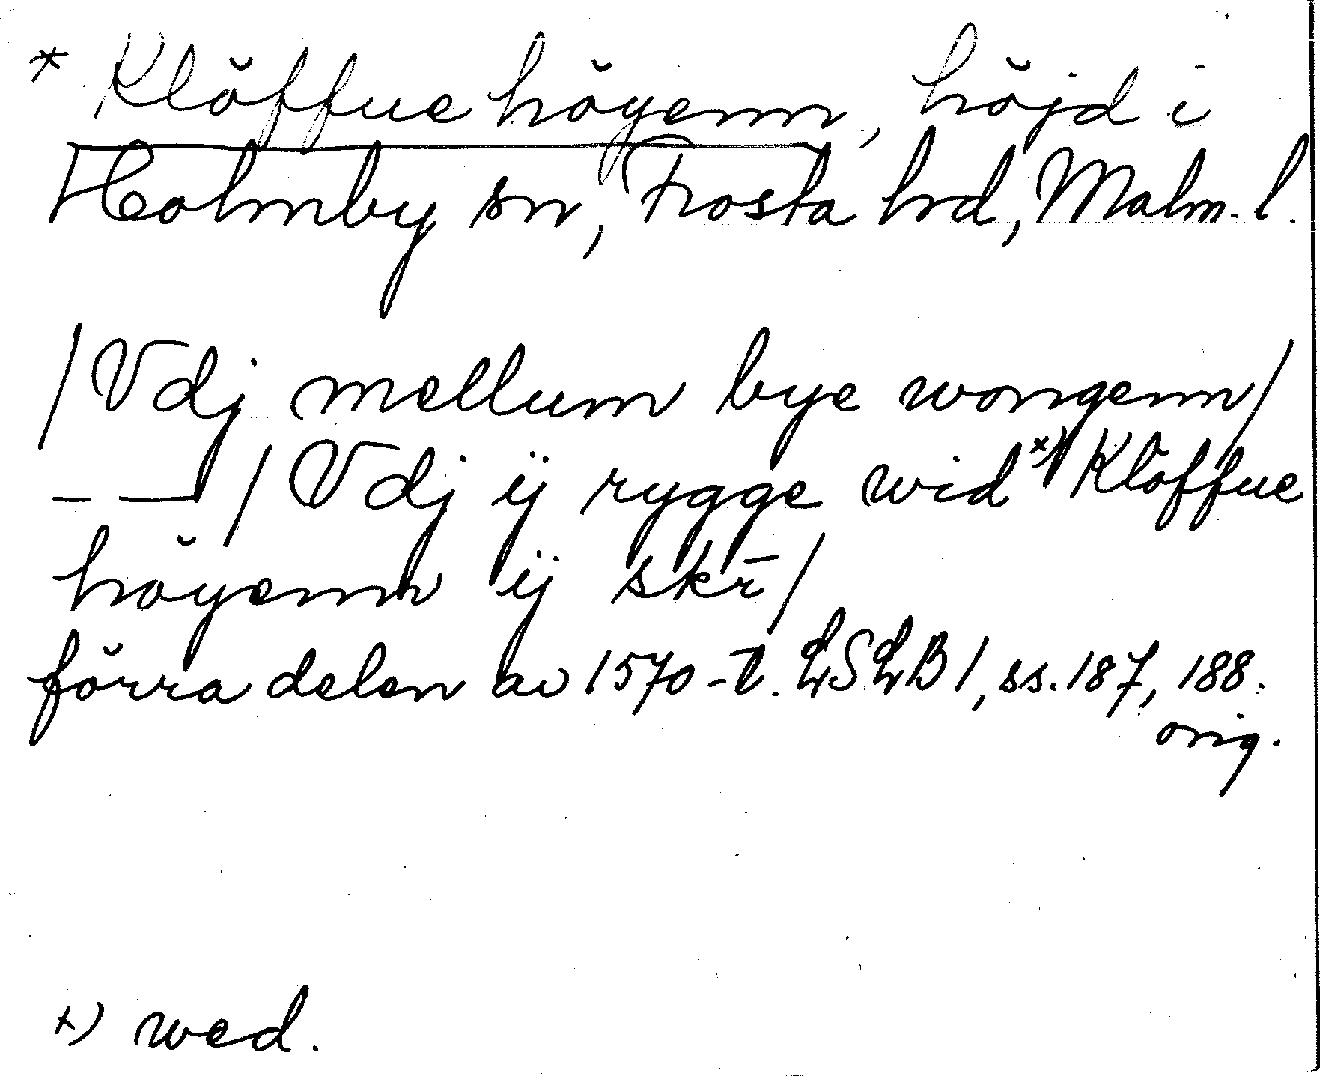 * Klöffue höyenn, höjd i
Holmby sn, Frosta hd, Malm. l.
/Vdj mellum bye wongenn/
— — /Vdj ij rygge wid *) Klöffue
höyenn ij skr̄/
förra delen av 1570-t. LSLB 1, ss. 187, 188.
orig.
*) wed.